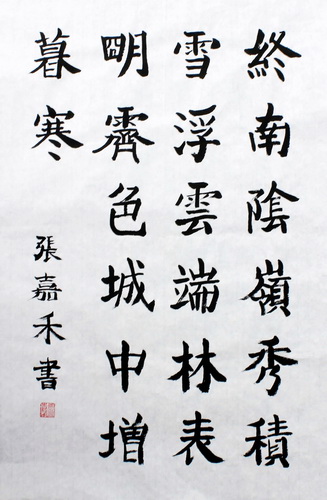 終南陰嶺秀積
雪浮雲端林表
明霽色城中增
暮寒
張嘉禾書